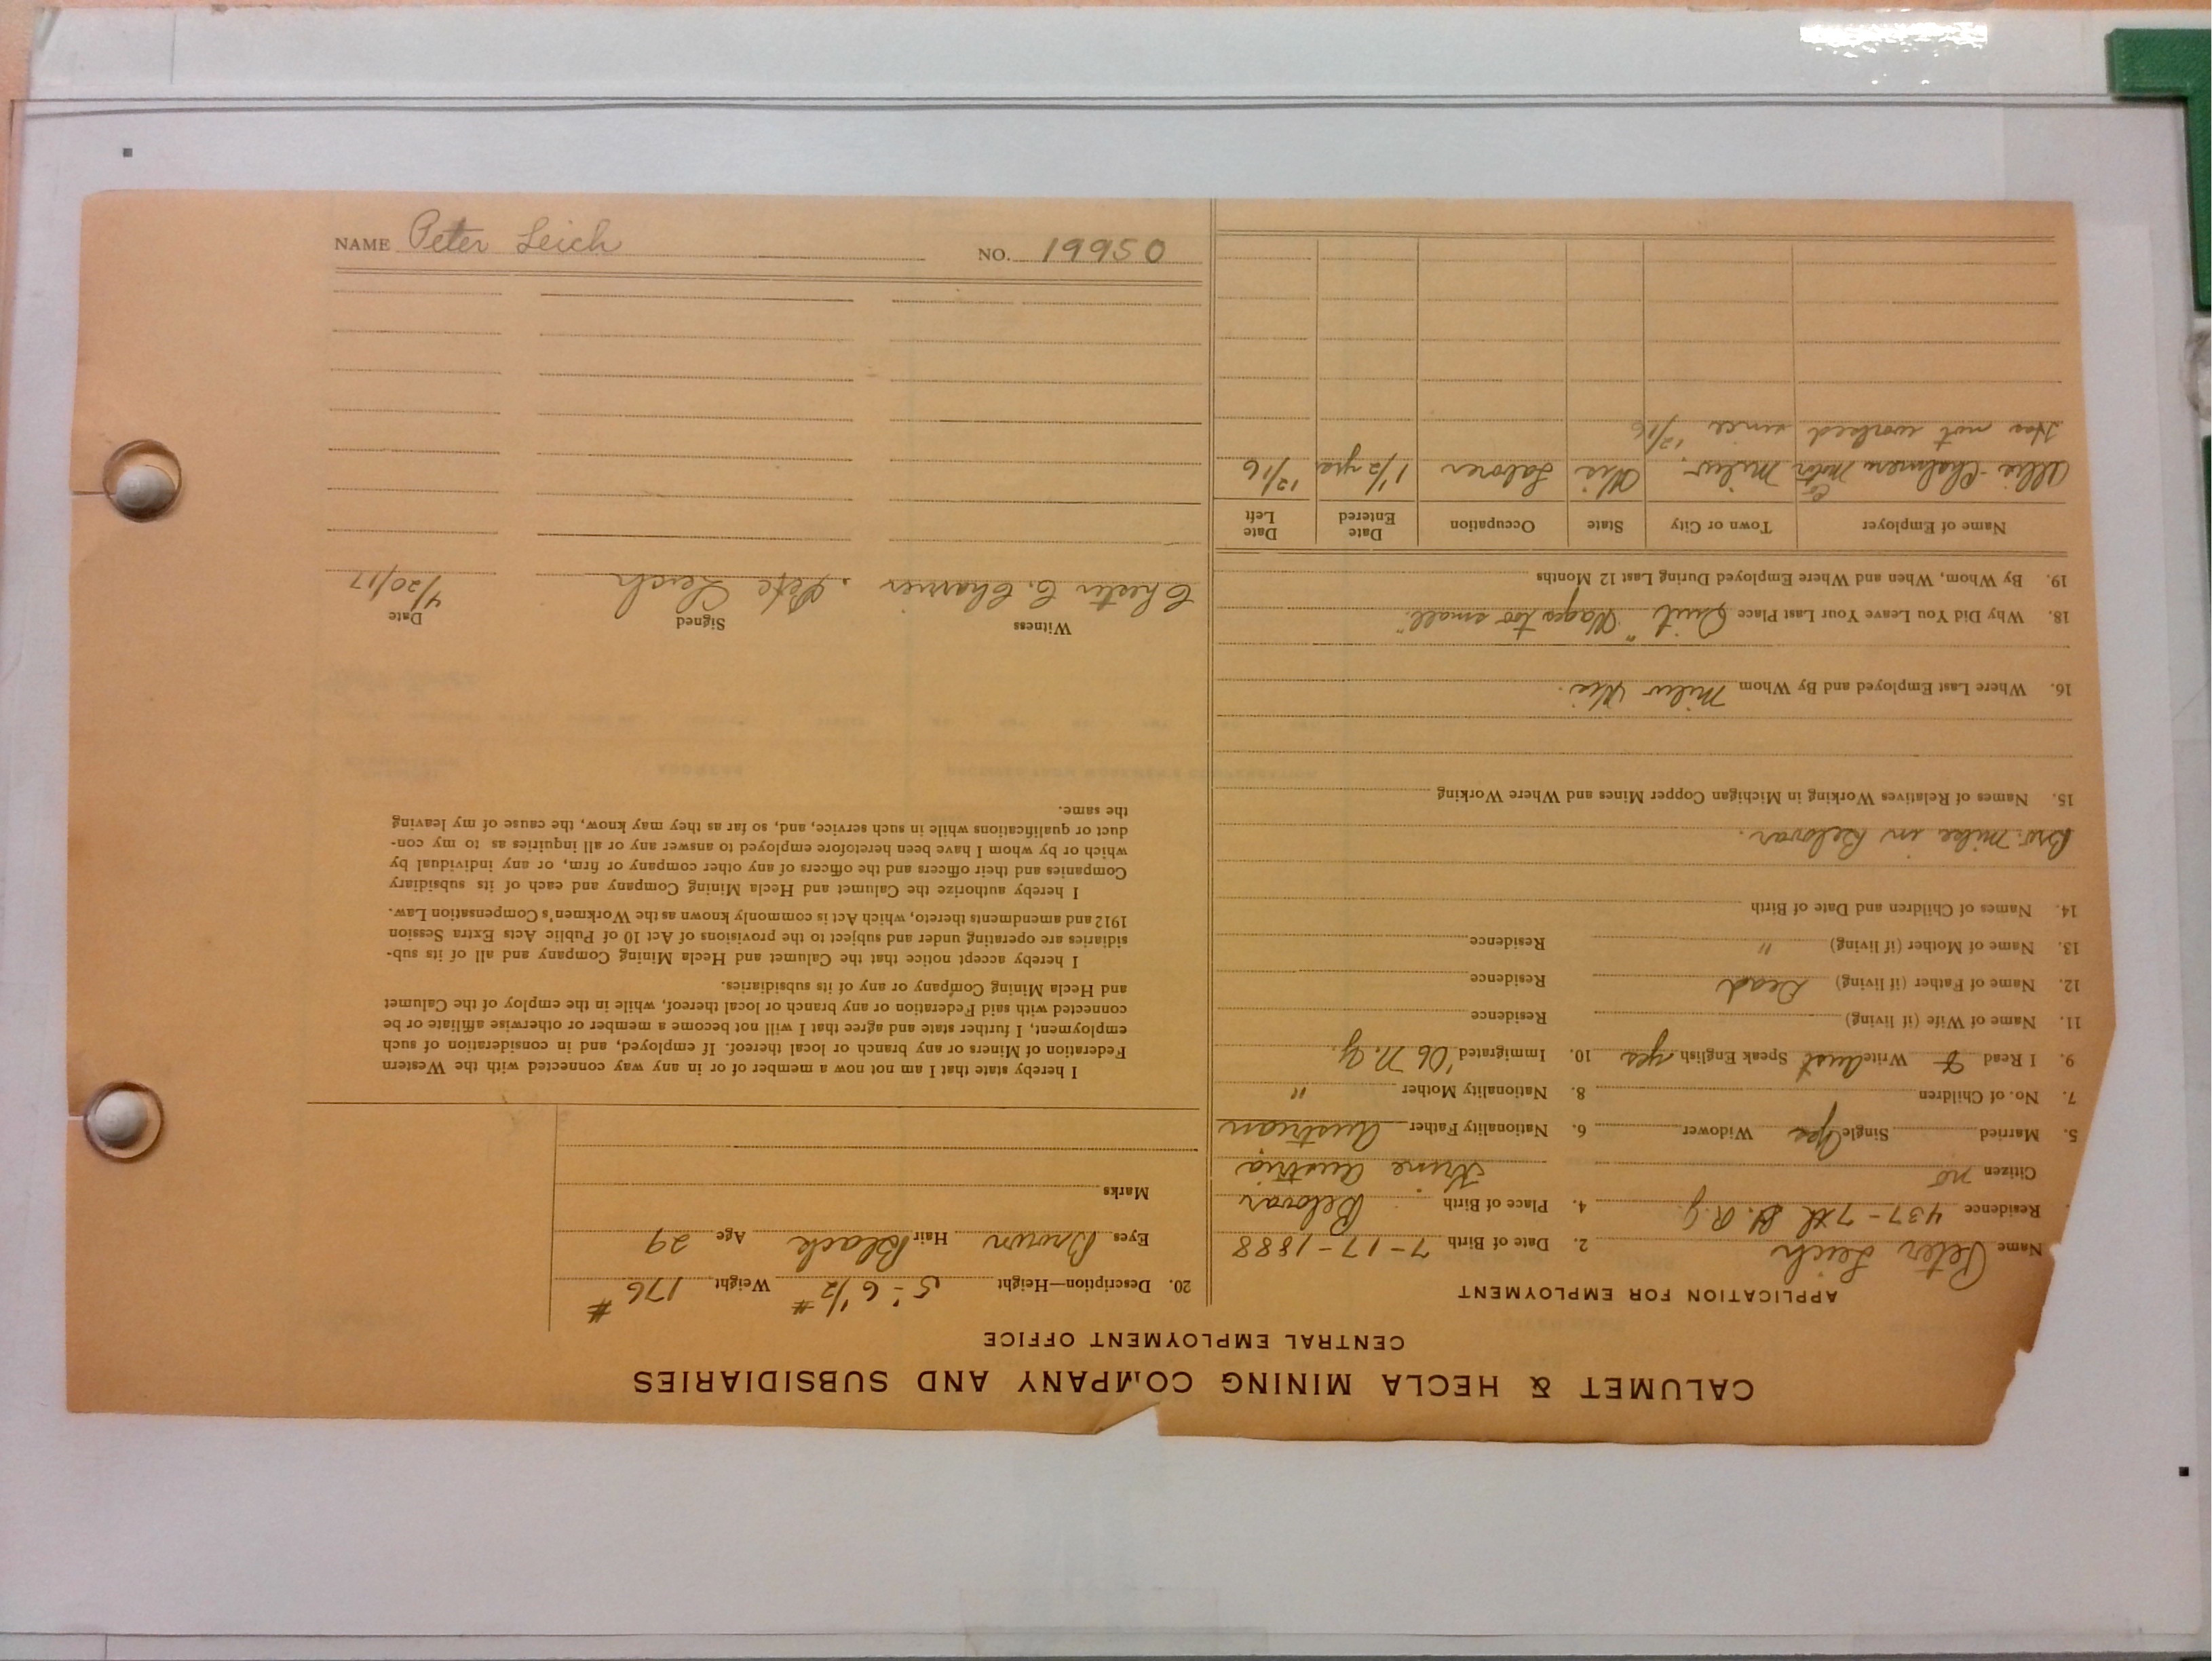 CALUMET & HECLA MINING COMPANY AND SUBSIDIARIES
CENTRAL EMPLOYMENT OFFICE
APPLICATION FOR EMPLOYMENT
Name Peter Leich 2. Date of Birth 7-17-1888
Residence 437-7th St. 4. Place of Birth Belovar
Citizen no Austria
5. Married Single yes Widower 6. Nationality Father Austrian
7. No. of Children 8. Nationality Mother "
9. I Read & Write Aust Speak English yes 10. Immigrated '06 N.Y.
11. Name of Wife (if living) Residence
12. Name of Father (if living) Dead Residence
13. Name of Mother (if living) " Residence
14. Names of Children and Date of Birth
Bro. Mike in Belovar.
15. Names of Relatives Working in Michigan Copper Mines and Where Working
16. Where Last Employed and By Whom Milw Wis.
18. Why Did You Leave Your Last Place Quit "Wages too small."
19. By Whom, When and Where Employed During Last 12 Months
Name of Employer Town or City State Occupation Date Entered Date Left
Allis-Chalmers Motor Co Milw. Wis Laborer 1 1/2 yrs 12/16
Has not worked since 12/16
20. Description—Height 5'-6 1/2" Weight 176 #
Eyes Brown Hair Black Age 29
Marks
I hereby state that I am not now a member of or in any way connected with the Western
Federation of Miners or any branch or local thereof. If employed, and in consideration of such
employment, I further state and agree that I will not become a member or otherwise affiliate or be
connected with said Federation or any branch or local thereof, while in the employ of the Calumet
and Hecla Mining Company or any of its subsidiaries.
I hereby accept notice that the Calumet and Hecla Mining Company and all of its sub-
sidiaries are operating under and subject to the provisions of Act 10 of Public Acts Extra Session
1912 and amendments thereto, which Act is commonly known as the Workmen's Compensation Law.
I hereby authorize the Calumet and Hecla Mining Company and each of its subsidiary
Companies and their officers and the officers of any other company or firm, or any individual by
which or by whom I have been heretofore employed to answer any or all inquiries as to my con-
duct or qualifications while in such service, and, so far as they may know, the cause of my leaving
the same.
Witness Signed Date
Chester C. Pete Leich 4/20/17
NAME Peter Leich NO. 19950